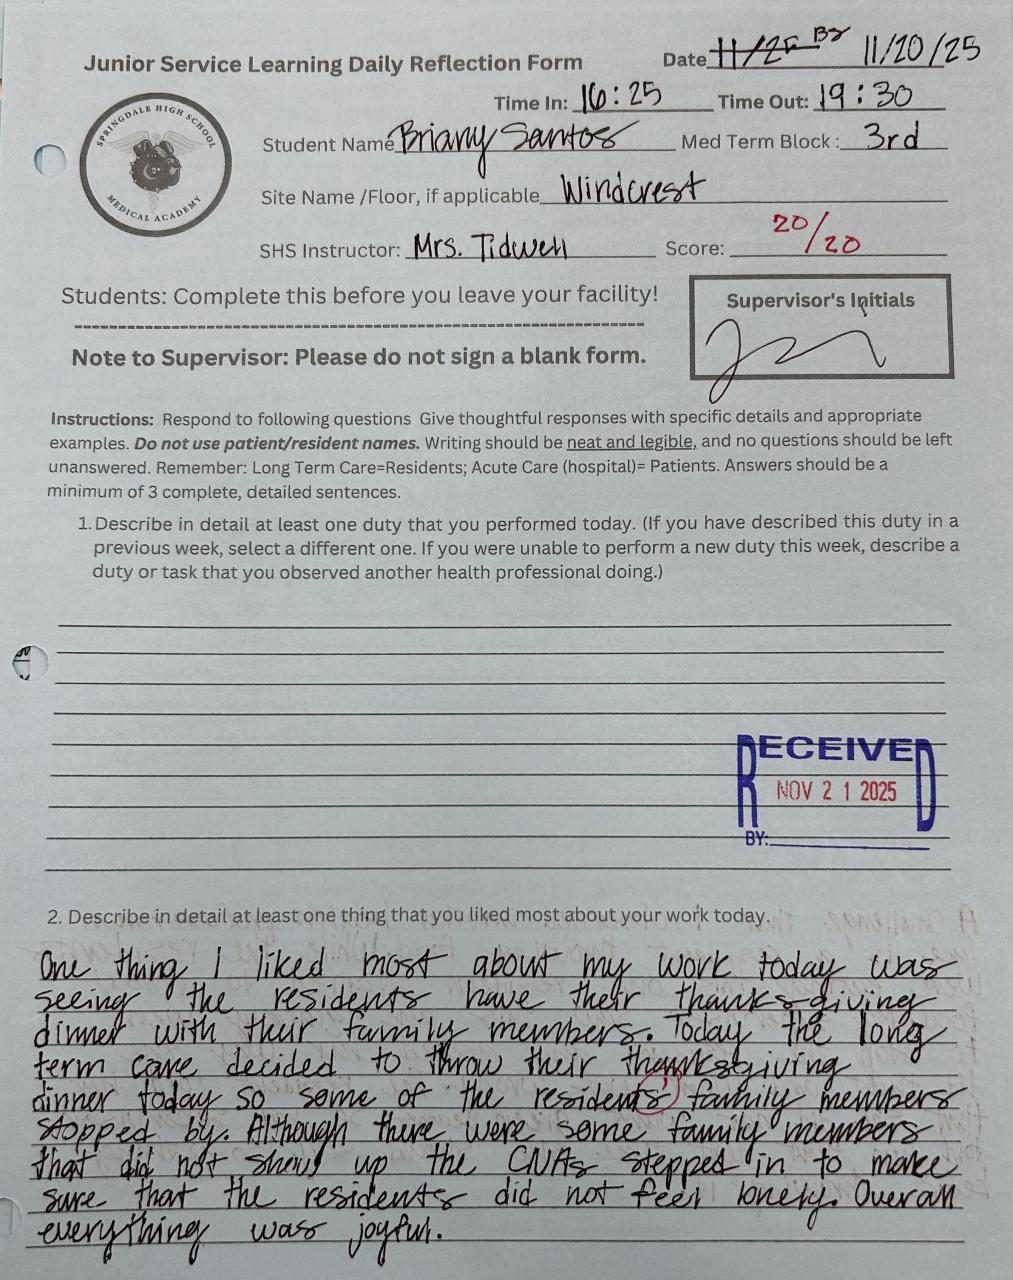 Junior Service Learning Daily Reflection Form
Date 11/25 BS 11/20/25
Time In: 16:25 Time Out: 19:30
SPRINGDALE HIGH SCHOOL
MEDICAL ACADEMY
Student Name Briany Santos Med Term Block: 3rd
Site Name /Floor, if applicable Windcrest
SHS Instructor: Mrs. Tidwell Score: 20/20
Students: Complete this before you leave your facility!
Supervisor's Initials
Note to Supervisor: Please do not sign a blank form.
Instructions: Respond to following questions Give thoughtful responses with specific details and appropriate
examples. Do not use patient/resident names. Writing should be neat and legible, and no questions should be left
unanswered. Remember: Long Term Care=Residents; Acute Care (hospital)= Patients. Answers should be a
minimum of 3 complete, detailed sentences.
1. Describe in detail at least one duty that you performed today. (If you have described this duty in a
previous week, select a different one. If you were unable to perform a new duty this week, describe a
duty or task that you observed another health professional doing.)
RECEIVED
NOV 21 2025
BY:
2. Describe in detail at least one thing that you liked most about your work today.
One thing I liked most about my work today was
seeing the residents have their thanksgiving
dinner with their family members. Today the long
term care decided to throw their thanksgiving
dinner today so some of the residents' family members
stopped by. Although there were some family members
that did not show up the CNAs stepped in to make
sure that the residents did not feel lonely. Overall
everything was joyful.